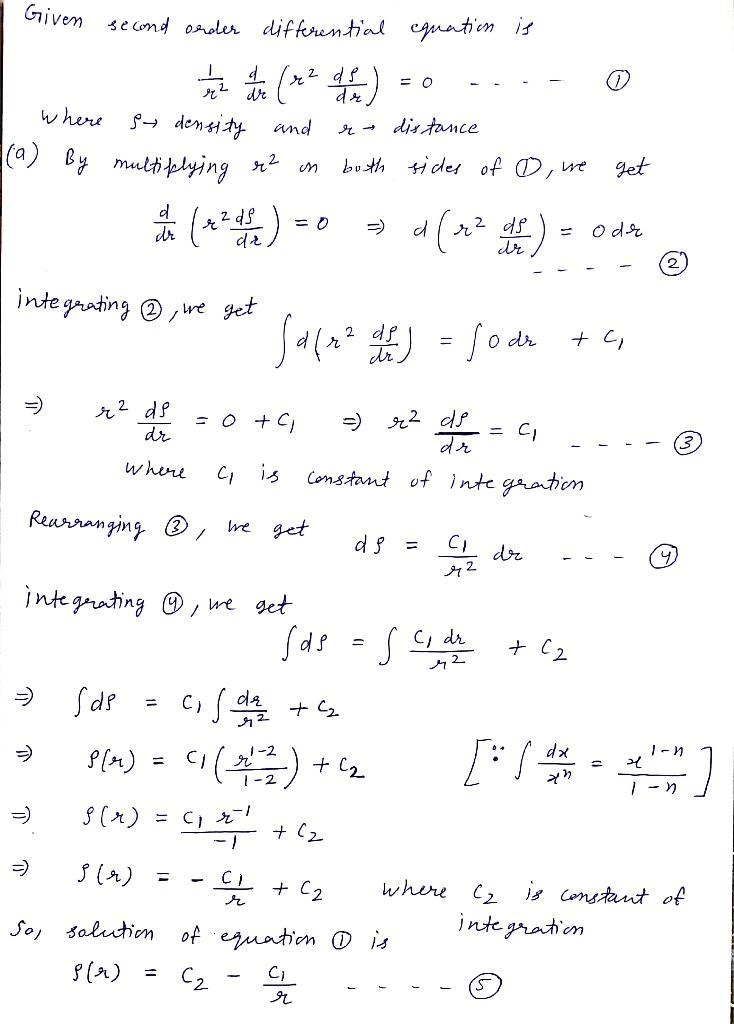 Given second order differential equation is
1/r² d/dr (r² dρ/dr) = 0 - - - - ①
where ρ → density and r → distance
(a) By multiplying r² on both sides of ①, we get
d/dr (r² dρ/dr) = 0 ⇒ d (r² dρ/dr) = 0 dr
- - - - ②
integrating ②, we get
∫ d(r² dρ/dr) = ∫ 0 dr + C₁
⇒ r² dρ/dr = 0 + C₁ ⇒ r² dρ/dr = C₁ - - - - ③
where C₁ is constant of integration
Rearranging ③, we get
dρ = C₁/r² dr - - - ④
integrating ④, we get
∫ dρ = ∫ C₁ dr/r² + C₂
⇒ ∫ dρ = C₁ ∫ dr/r² + C₂
⇒ ρ(r) = C₁ (r^(1-2)/(1-2)) + C₂ [∵ ∫ dx/xⁿ = x^(1-n)/(1-n)]
⇒ ρ(r) = C₁ r⁻¹/-1 + C₂
⇒ ρ(r) = - C₁/r + C₂ where C₂ is constant of
integration
So, solution of equation ① is
ρ(r) = C₂ - C₁/r - - - - ⑤